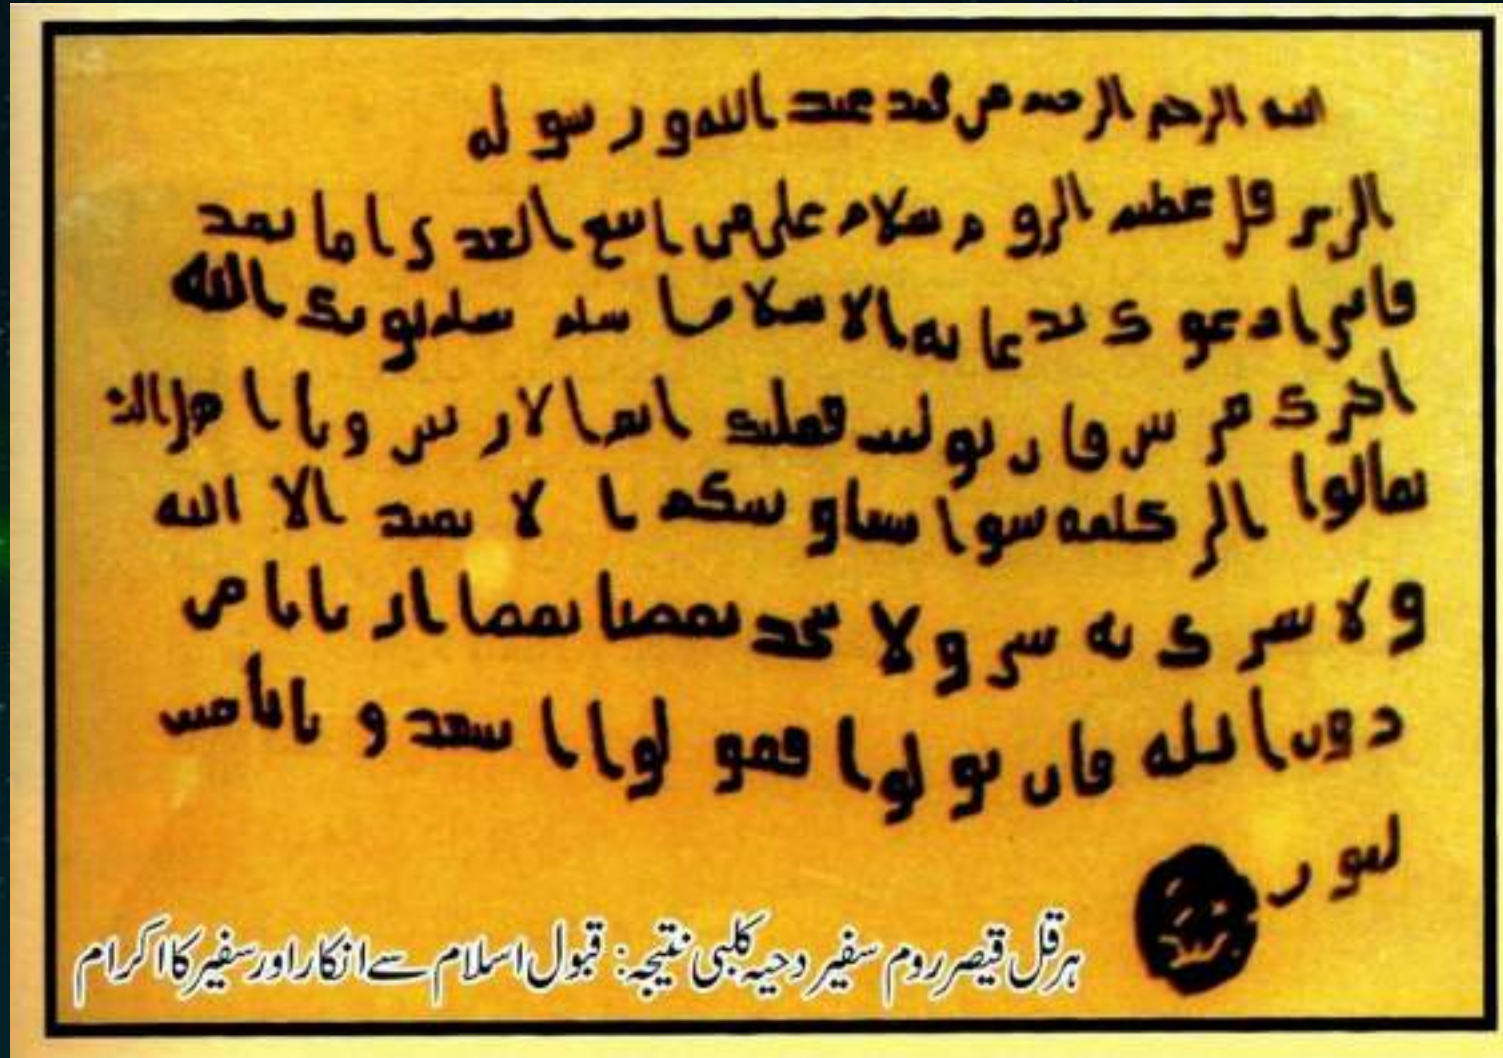 الله الرحم الرحمن من محمد عبد الله و رسوله
الى هرقل عظيم الروم سلام على من اتبع الهدى اما بعد
فانى ادعوك بدعايه الاسلام اسلم تسلم يوتك الله
اجرك مرتين فان توليت فعليك اثم الاريسين و يا اهل الكتاب
تعالوا الى كلمه سوا بيننا و بينكم ا لا نعبد الا الله
و لا نشرك به شيئا و لا يتخذ بعضنا بعضا اربابا من
دون الله فان تولوا فقولوا اشهدوا بانا مسلمون
ہرقل قیصر روم سفیر دحیہ کلبی نتیجہ: قبول اسلام سے انکار اور سفیر کا اکرام